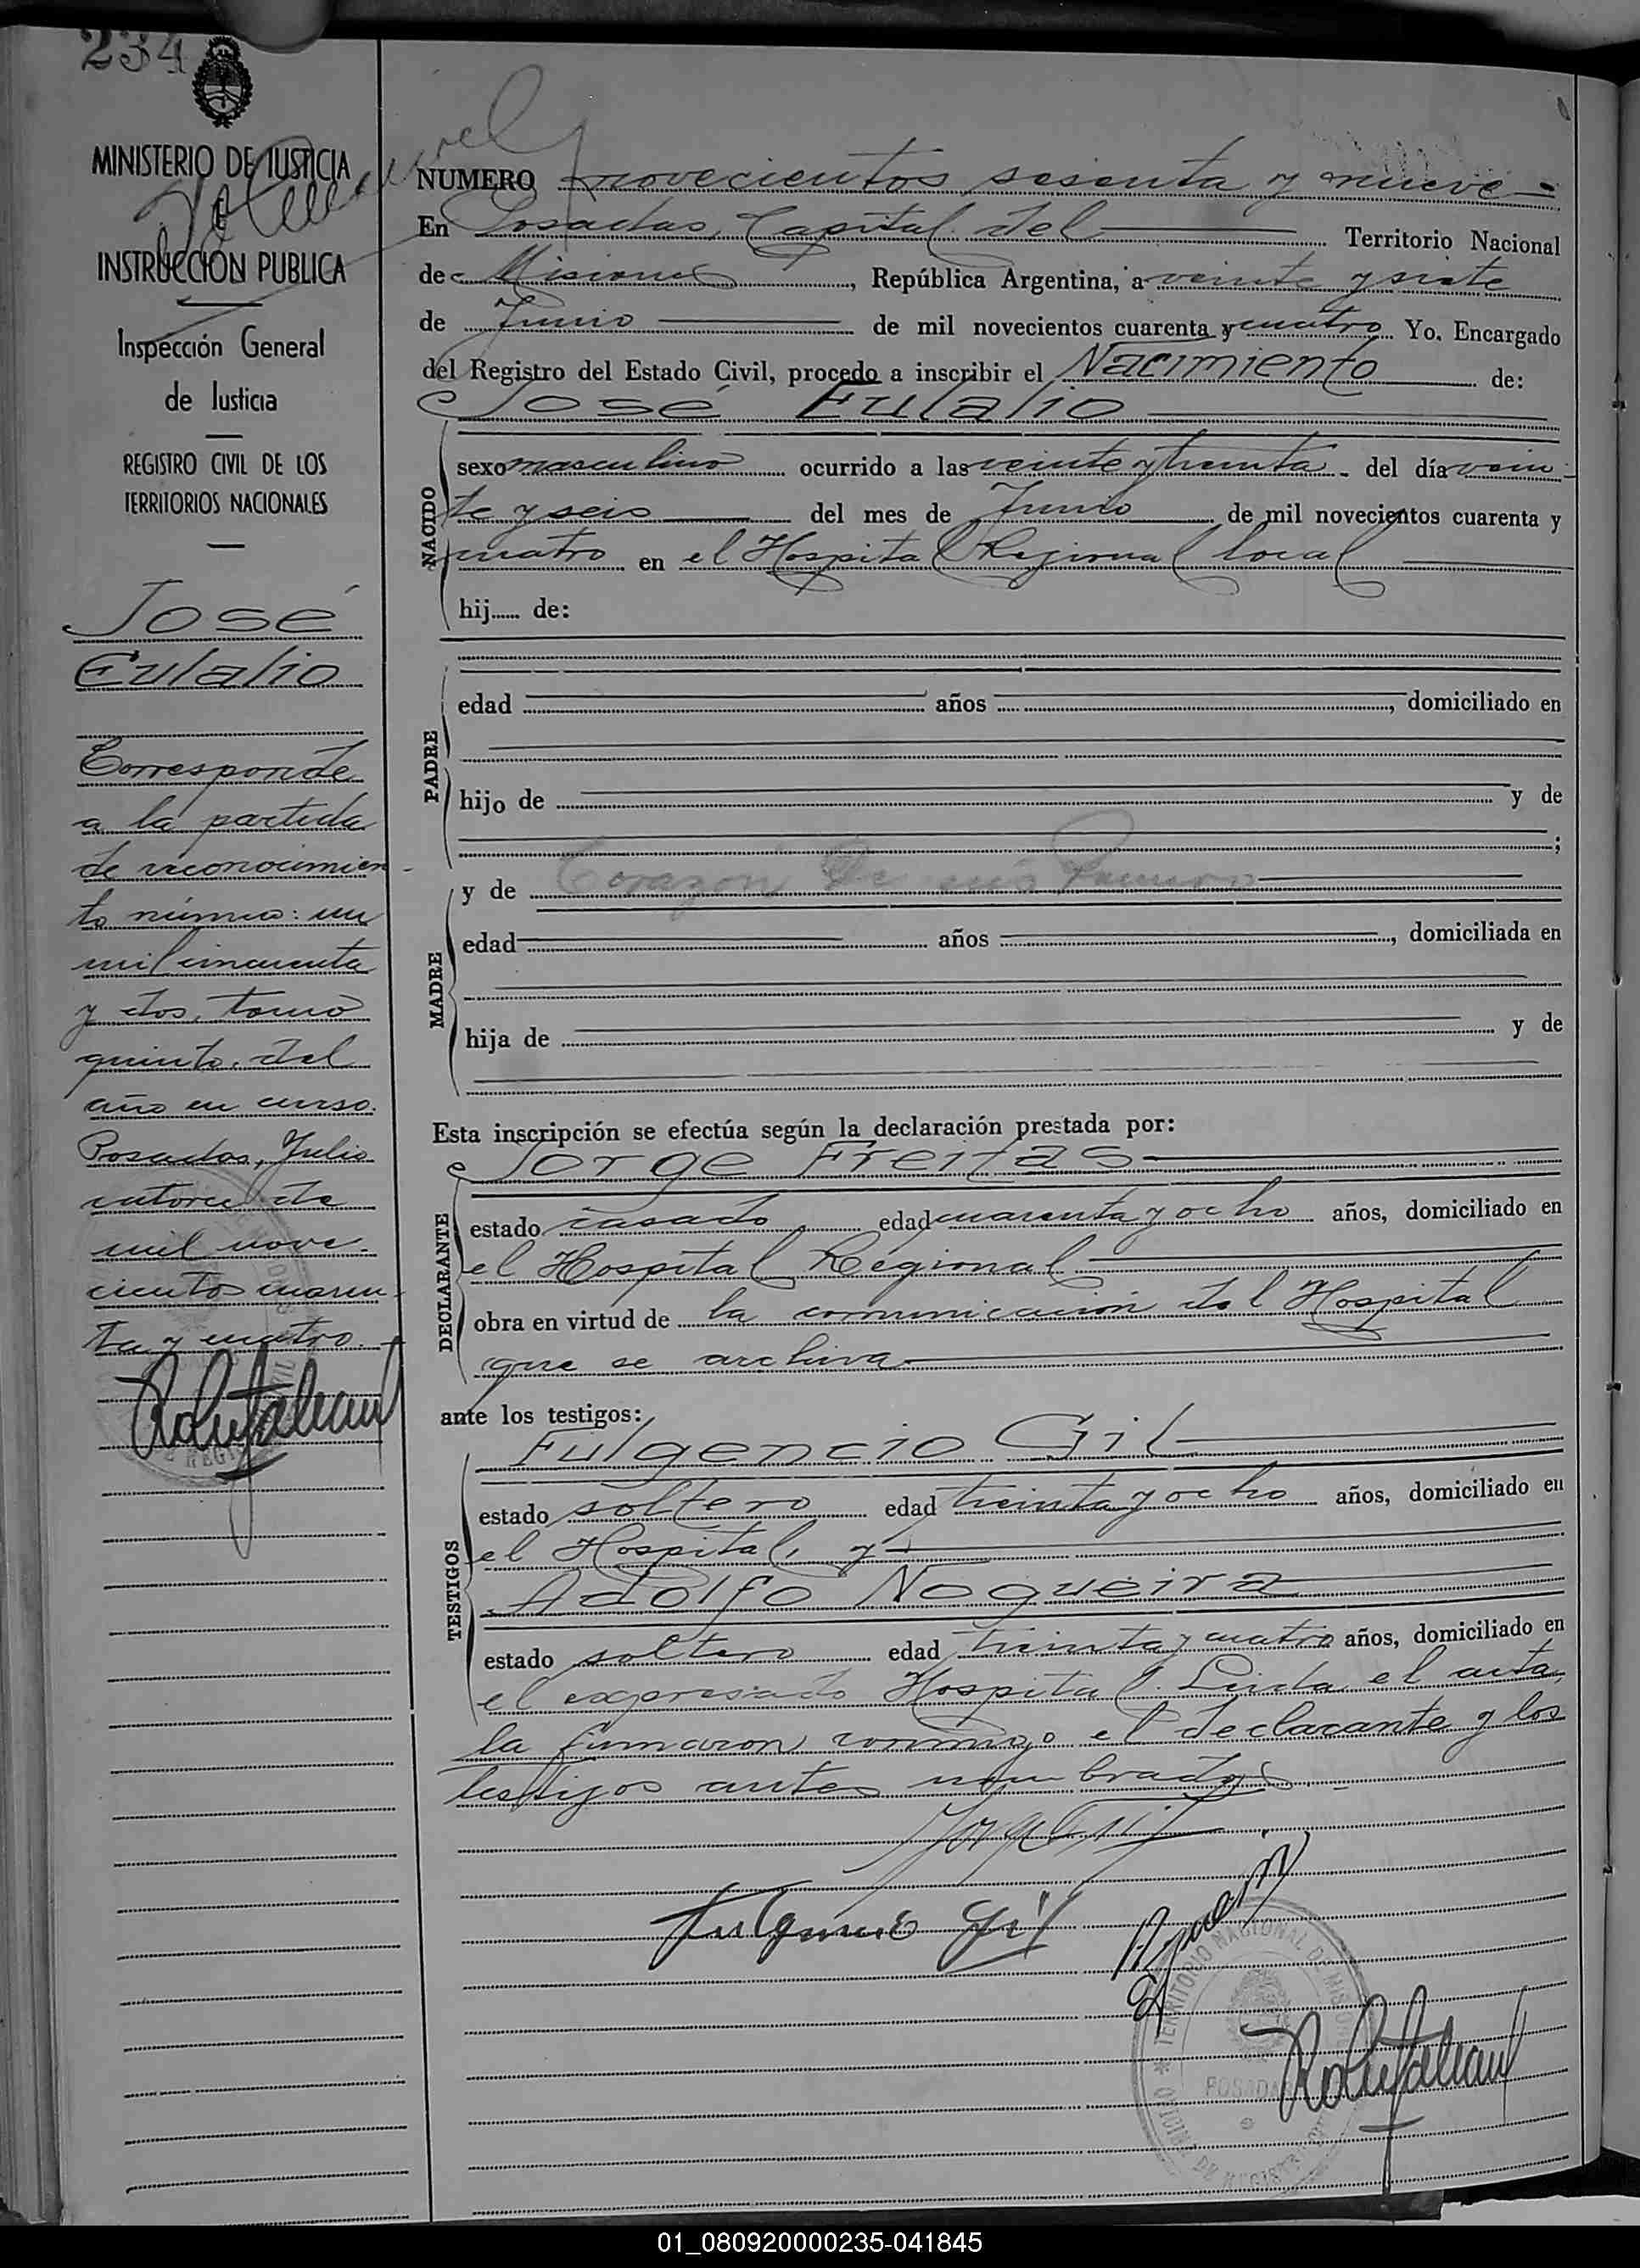 234
MINISTERIO DE JUSTICIA
e
INSTRUCCIÓN PUBLICA
Inspección General
de Justicia
REGISTRO CIVIL DE LOS
TERRITORIOS NACIONALES
José
Eulalio
Corresponde
a la partida
de reconocimien
to número: un
mil cincuenta
y dos, tomo
quinto, del
año en curso.
Posadas, Julio
catorce de
mil nove-
cientos cuaren-
ta y cuatro.
NUMERO novecientos sesenta y nueve
En Posadas, Capital del Territorio Nacional
de Misiones, República Argentina, a veinte y siete
de Junio de mil novecientos cuarenta y cuatro Yo. Encargado
del Registro del Estado Civil, procedo a inscribir el Nacimiento de:
José Eulalio
NACIDO
sexo masculino ocurrido a las veinte y treinta del día vein-
te y seis del mes de Junio de mil novecientos cuarenta y
cuatro en el Hospital Regional local
hij...... de:
PADRE
edad años , domiciliado en
hijo de y de
;
MADRE
y de Corazon de
edad años , domiciliada en
hija de y de
Esta inscripción se efectúa según la declaración prestada por:
DECLARANTE
Jorge Freitas
estado casado, edad cuarenta y ocho años, domiciliado en
el Hospital Regional
obra en virtud de la comunicación del Hospital
que se archiva
ante los testigos:
TESTIGOS
Fulgencio Gil
estado soltero edad treinta y ocho años, domiciliado en
el Hospital, y
Adolfo Nogueira
estado soltero edad treinta y cuatro años, domiciliado en
el expresado Hospital. Leida el acta,
la firmaron conmigo el declarante y los
testigos antes nombrados.
Fulgencio Gil
TERRITORIO NACIONAL DE MISIONES
POSADAS
OFICINA DE REGISTRO
01_080920000235-041845